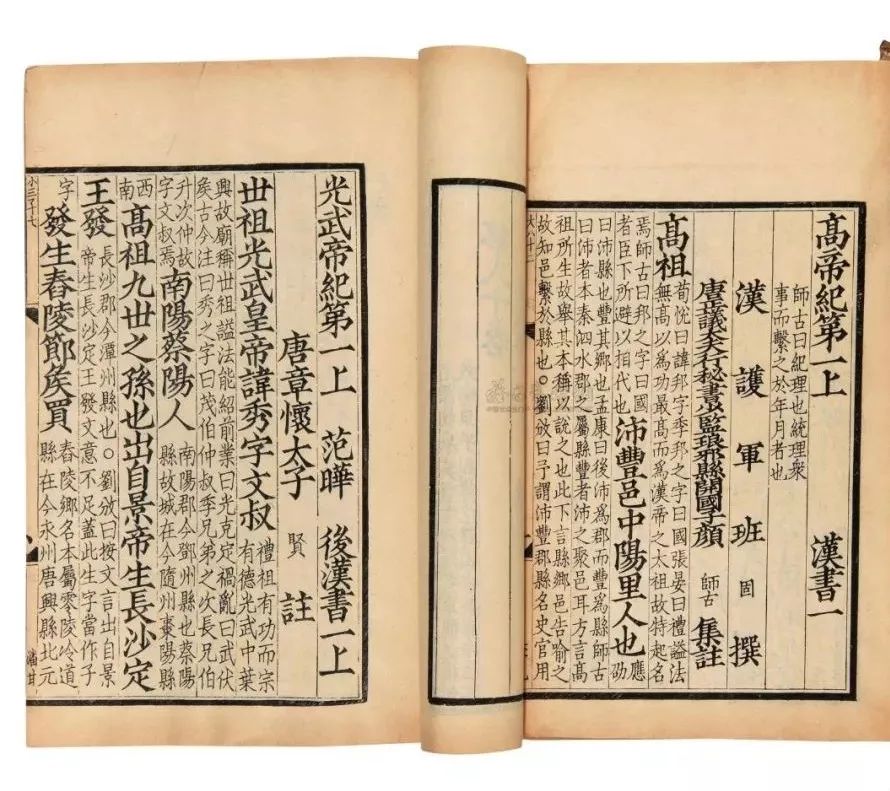 高帝紀第一上 漢書一
師古曰紀理也統理衆
事而繫之於年月者也
漢護軍班固撰
唐正議大夫行秘書少監琅邪縣開國子顔師古集註
高祖 荀悅曰諱邦字季邦之字曰國張晏曰禮謚法
無高以爲功最高而爲漢帝之太祖故特起名
焉師古曰邦之字曰國
者臣下所避以相代也 沛豐邑中陽里人也 應
劭
曰沛縣也豐其鄉也孟康曰後沛爲郡而豐爲縣師古
曰沛者本秦泗水郡之屬縣豐者沛之聚邑耳方言高
祖所生故舉其本稱以說之也此下言縣鄉邑告喻之
故知邑繫於縣也。劉攽曰予謂沛豐郡縣名史官用
光武帝紀第一上 范曄 後漢書一上
唐章懷太子賢註
世祖光武皇帝諱秀字文叔 禮祖有功而宗
有德光武中葉
興故廟稱世祖謚法能紹前業曰光克定禍亂曰武伏
矦古今注曰秀之字曰茂伯仲叔季兄弟之次長兄伯
升次仲故
字文叔焉 南陽蔡陽人 南陽郡今鄧州縣也蔡陽
縣故城在今隨州棗陽縣
西
南 高祖九世之孫也出自景帝生長沙定
王發 長沙郡今潭州縣也。劉攽曰按文言出自景
帝生長沙定王發文意不足蓋此生字當作子
字 發生舂陵節矦買 舂陵鄉名本屬零陵泠道
縣在今永州唐興縣北元